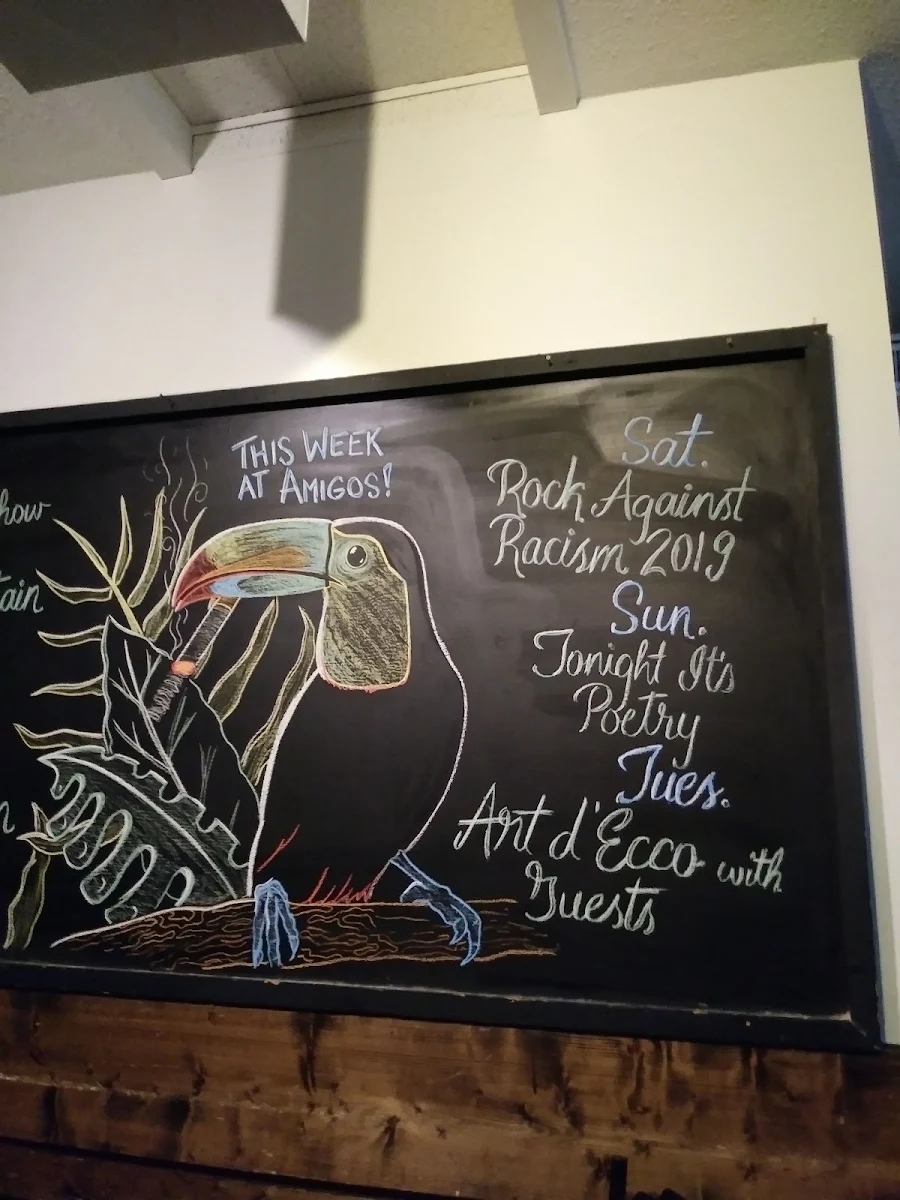 THIS WEEK
AT AMIGOS!
Sat.
Rock Against
Racism 2019
Sun.
Tonight It's
Poetry
Tues.
Art d'Ecco with
Guests